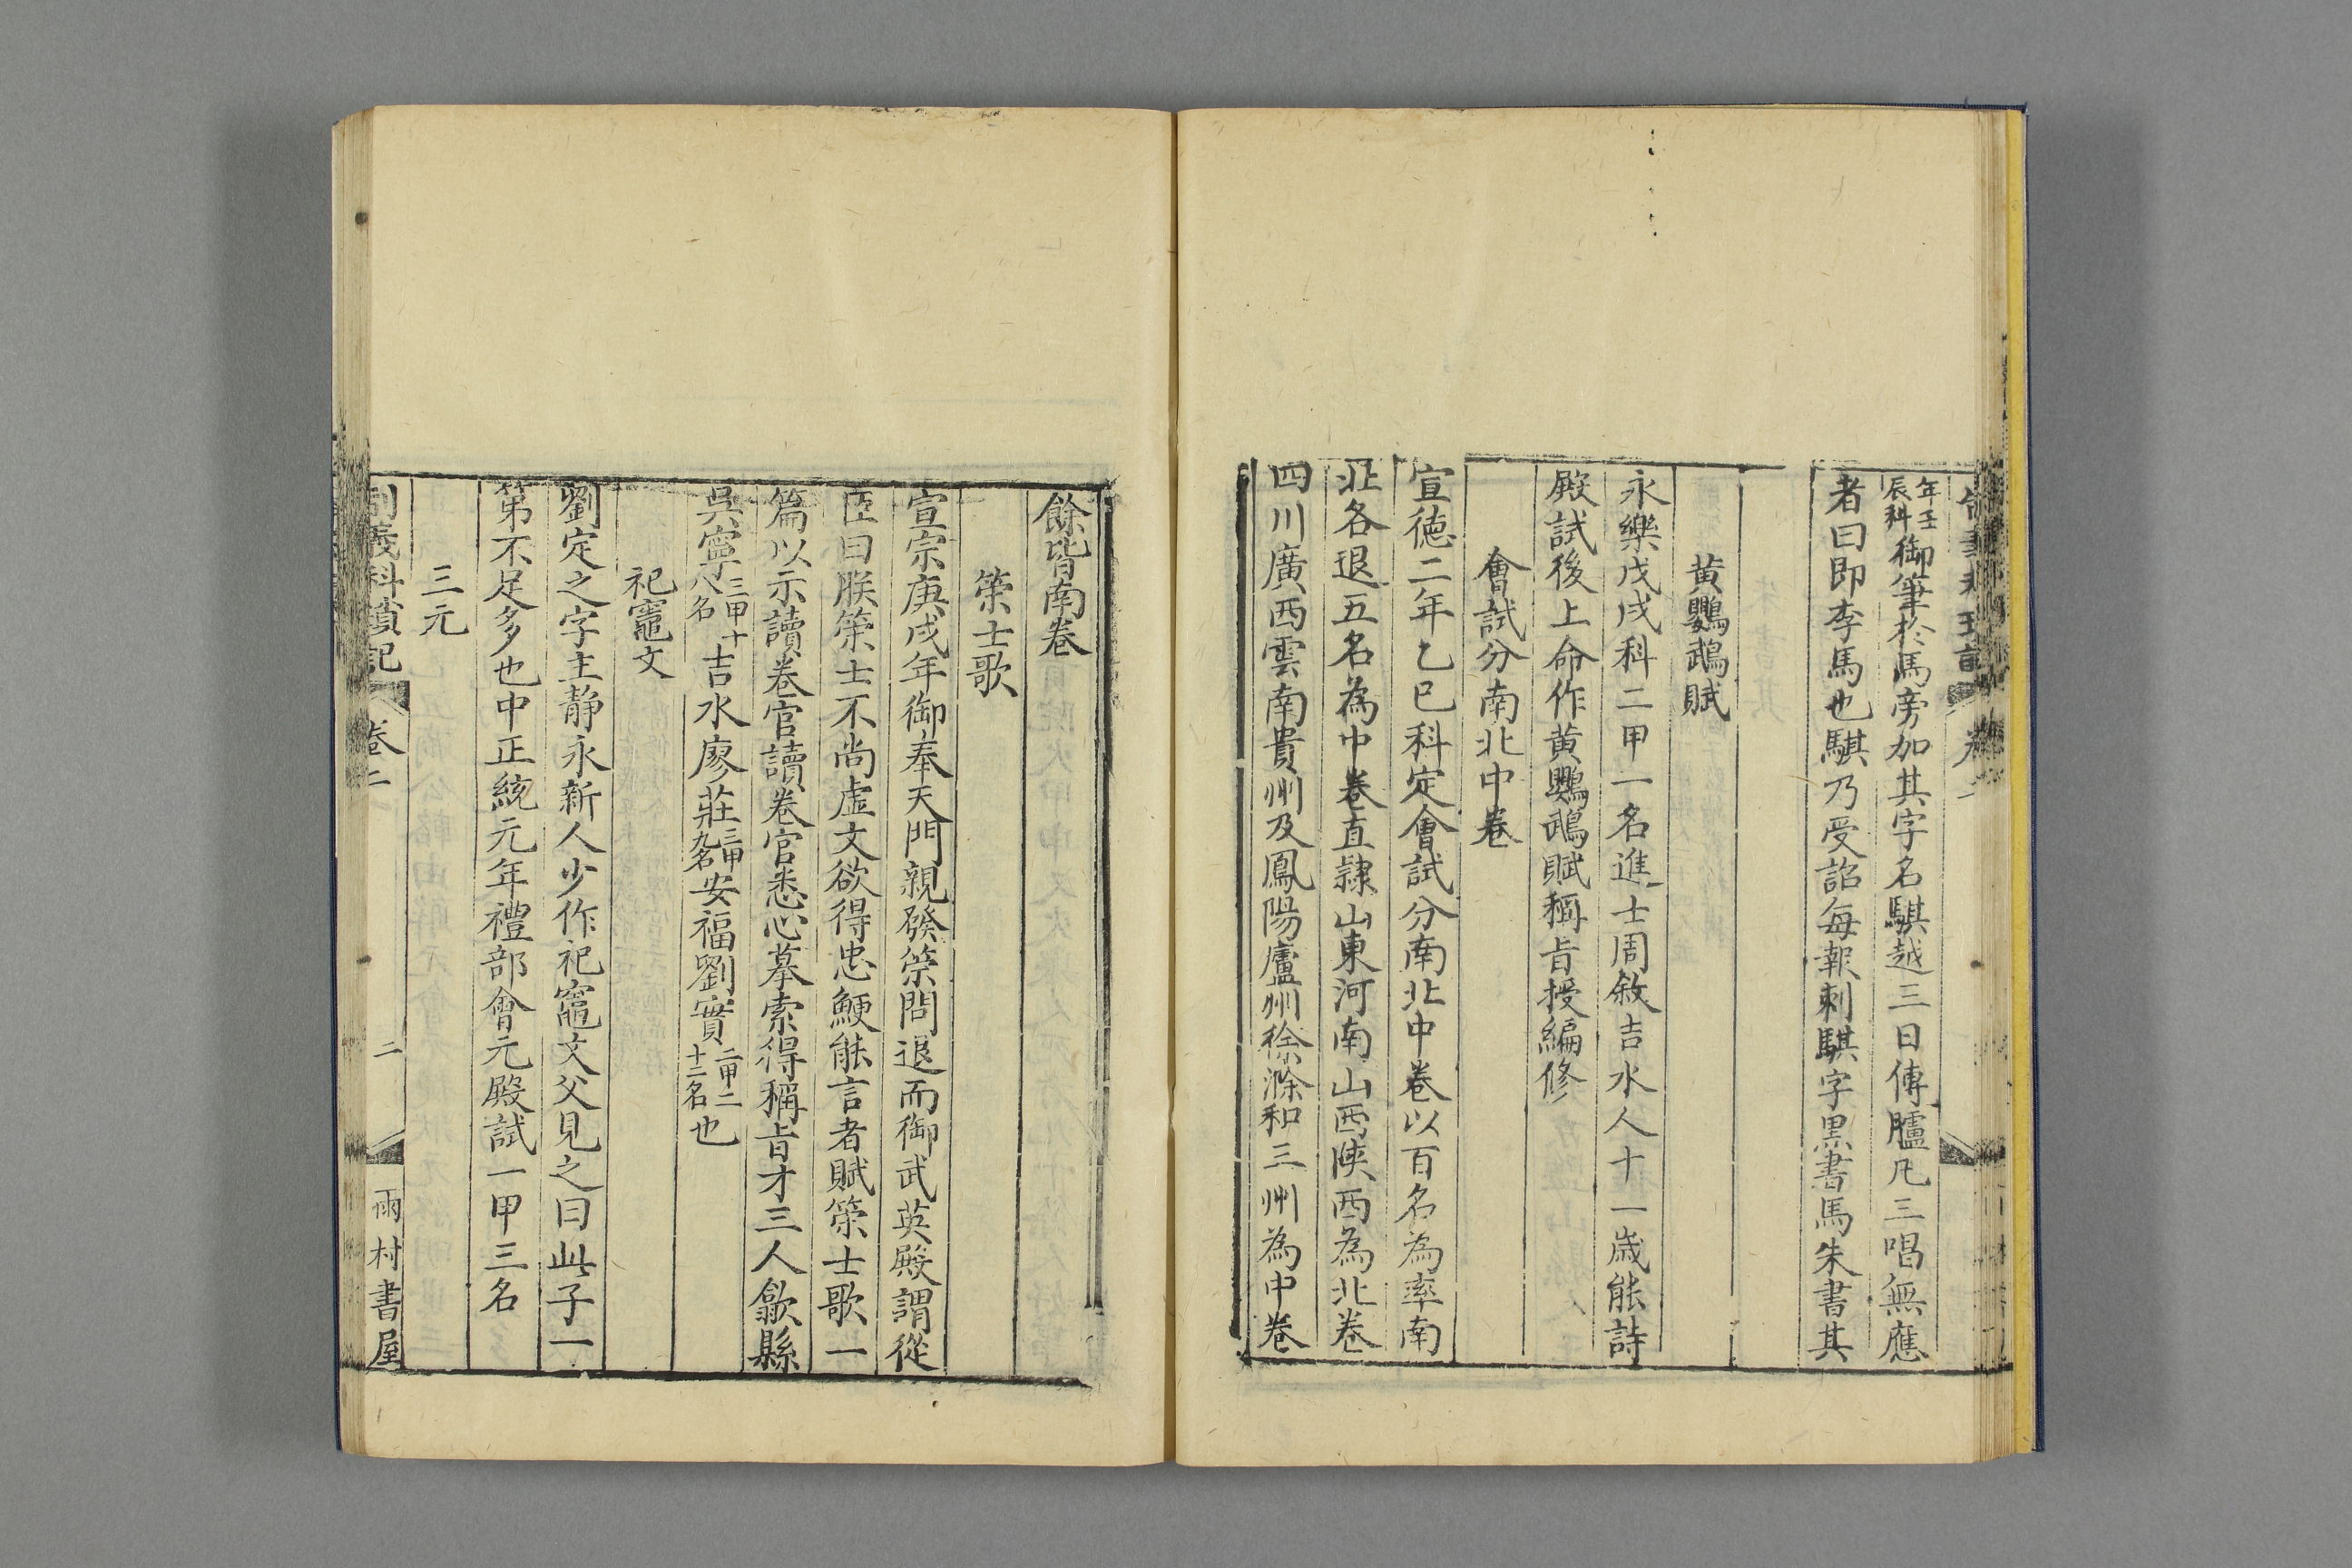 年壬辰科御筆於馬旁加其字名騏越三日傳臚凡三唱無應
者曰即李馬也騏乃受詔每報刺騏字黑書馬朱書其
黃鸚鵡賦
永樂戊戌科二甲一名進士周敘吉水人十一歲能詩
殿試後上命作黃鸚鵡賦稱旨授編修
會試分南北中卷
宣德二年乙巳科定會試分南北中卷以百名為率南
北各退五名為中卷直隸山東河南山西陝西為北卷
四川廣西雲南貴州及鳳陽廬州徐滁和三州為中卷
餘皆南卷
策士歌
宣宗庚戌年御奉天門親發策問退而御武英殿謂從
臣曰朕策士不尚虛文欲得忠鯁能言者賦策士歌一
篇以示讀卷官讀卷官悉心摹索得稱旨才三人歙縣
吳寧三甲十八名吉水廖莊三甲九名安福劉實二甲二十二名也
祀竈文
劉定之字主靜永新人少作祀竈文父見之曰此子一
第不足多也中正統元年禮部會元殿試一甲三名
三元
制義科瑣記 卷二 二 雨村書屋